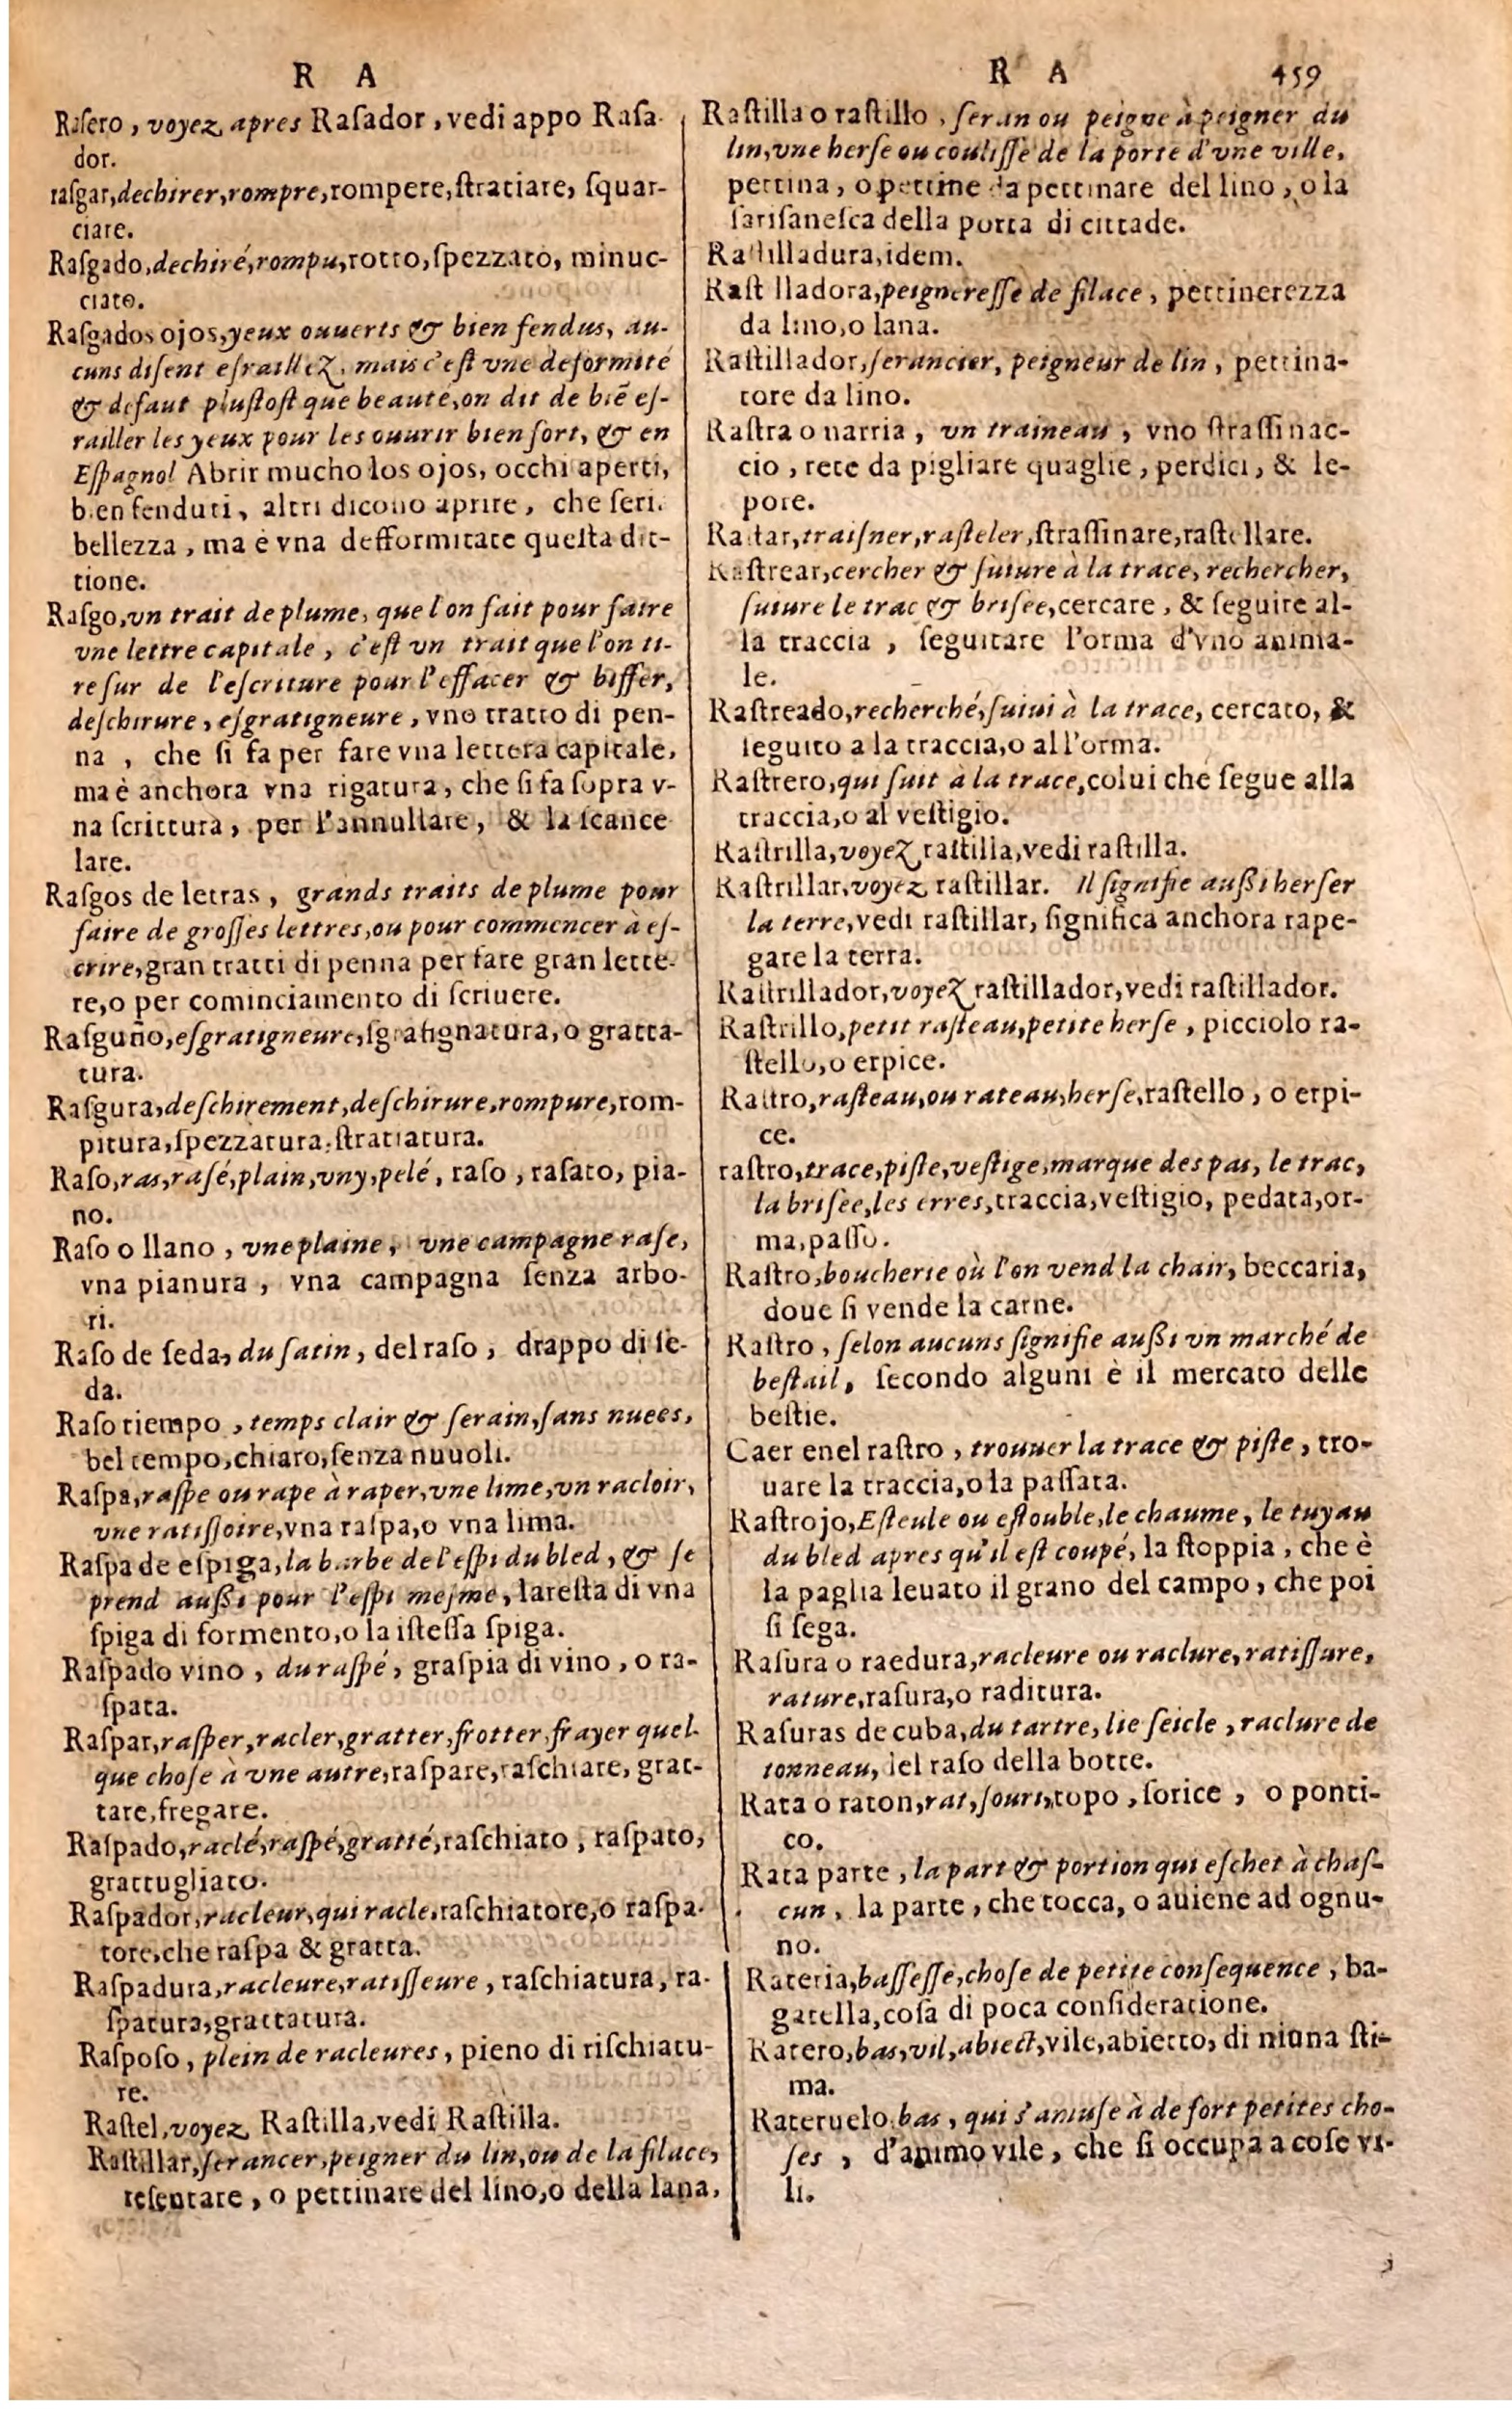 R A
Raſero, voyez apres Raſador, vedi appo Raſa-
dor.
raſgar, dechirer, rompre, rompere, ſtratiare, ſquar-
ciare.
Raſgado, dechiré, rompu, rotto, ſpezzato, minuc-
ciato.
Raſgados ojos, yeux ouuerts & bien fendus, au-
cuns diſent eſraillez, mais c'eſt vne deformité
& defaut pluſtoſt que beauté, on dit de biẽ eſ-
railler les yeux pour les ouurir bien fort, & en
Eſpagnol Abrir mucho los ojos, occhi aperti,
bien fenduti, altri dicono aprire, che ſeri.
bellezza, ma è vna defformitate queſta dit-
tione.
Raſgo, vn trait de plume, que l'on fait pour faire
vne lettre capitale, c'eſt vn trait que l'on ti-
re ſur de l'eſcriture pour l'effacer & biffer,
deſchirure, eſgratigneure, vno tratto di pen-
na, che ſi fa per fare vna lettera capitale,
ma è anchora vna rigatura, che ſi fa ſopra v-
na ſcrittura, per l'annullare, & la ſcance
lare.
Raſgos de letras, grands traits de plume pour
faire de groſſes lettres, ou pour commencer à eſ-
crire, gran tratti di penna per fare gran lette-
re, o per cominciamento di ſcriuere.
Raſguño, eſgratigneure, ſgratignatura, o gratta-
tura.
Raſgura, deſchirement, deſchirure, rompure, rom-
pitura, ſpezzatura, ſtratiatura.
Raſo, ras, raſé, plain, vny, pelé, raſo, raſato, pia-
no.
Raſo o llano, vne plaine, vne campagne raſe,
vna pianura, vna campagna ſenza arbo-
ri.
Raſo de ſeda, du ſatin, del raſo, drappo di ſe-
da.
Raſo tiempo, temps clair & ſerain, ſans nuees,
bel tempo, chiaro, ſenza nuuoli.
Raſpa, raſpe ou rape à raper, vne lime, vn racloir,
vne ratiſſoire, vna raſpa, o vna lima.
Raſpa de eſpiga, la barbe de l'eſpi du bled, & ſe
prend auſſi pour l'eſpi meſme, lareſta di vna
ſpiga di formento, o la iſteſſa ſpiga.
Raſpado vino, du raſpé, graſpia di vino, o ra-
ſpata.
Raſpar, raſper, racler, gratter, frotter, frayer quel-
que choſe à vne autre, raſpare, raſchiare, grat-
tare, fregare.
Raſpado, raclé, raſpé, gratté, raſchiato, raſpato,
grattugliato.
Raſpador, racleur, qui racle, raſchiatore, o raſpa-
tore, che raſpa & gratta.
Raſpadura, racleure, ratiſſeure, raſchiatura, ra-
ſpatura, grattatura.
Raſpoſo, plein de racleures, pieno di riſchiatu-
re.
Raſtel, voyez Raſtilla, vedi Raſtilla.
Raſtillar, ſerancer, peigner du lin, ou de la filace,
reſentare, o pettinare del lino, o della lana,
R A 459
Raſtilla o raſtillo, ſeran ou peigne à peigner du
lin, vne herſe ou couliſſe de la porte d'vne ville,
pettina, o pettine da pettinare del lino, o la
ſariſaneſca della porta di cittade.
Raſtilladura, idem.
Raſtilladora, peignereſſe de filace, pettinerezza
da lino, o lana.
Raſtillador, ſerancier, peigneur de lin, pettina-
tore da lino.
Raſtra o narria, vn traineau, vno ſtraſſinac-
cio, rete da pigliare quaglie, perdici, & le-
pore.
Raſtar, traiſner, raſteler, ſtraſſinare, raſtellare.
Raſtrear, cercher & ſuiure à la trace, rechercher,
ſuiure le trac & briſee, cercare, & ſeguire al-
la traccia, ſeguitare l'orma d'vno anima-
le.
Raſtreado, recherché, ſuiui à la trace, cercato, &
ſeguito a la traccia, o al l'orma.
Raſtrero, qui ſuit à la trace, colui che ſegue alla
traccia, o al veſtigio.
Raſtrilla, voyez raſtilla, vedi raſtilla.
Raſtrillar, voyez raſtillar. Il ſignifie auſſi herſer
la terre, vedi raſtillar, ſignifica anchora rape-
gare la terra.
Raſtrillador, voyez raſtillador, vedi raſtillador.
Raſtrillo, petit raſteau, petite herſe, picciolo ra-
ſtello, o erpice.
Raſtro, raſteau, ou rateau, herſe, raſtello, o erpi-
ce.
raſtro, trace, piſte, veſtige, marque des pas, le trac,
la briſee, les erres, traccia, veſtigio, pedata, or-
ma, paſſo.
Raſtro, boucherie où l'on vend la chair, beccaria,
doue ſi vende la carne.
Raſtro, ſelon aucuns ſignifie auſſi vn marché de
beſtail, ſecondo alguni è il mercato delle
beſtie.
Caer en el raſtro, trouuer la trace & piſte, tro-
uare la traccia, o la paſſata.
Raſtrojo, Eſteule ou eſtouble, le chaume, le tuyau
du bled apres qu'il eſt coupé, la ſtoppia, che è
la paglia leuato il grano del campo, che poi
ſi ſega.
Raſura o raedura, racleure ou raclure, ratiſſure,
rature, raſura, o raditura.
Raſuras de cuba, du tartre, lie ſeiche, raclure de
tonneau, del raſo della botte.
Rata o raton, rat, ſouris, topo, ſorice, o ponti-
co.
Rata parte, la part & portion qui eſchet à chaſ-
cun, la parte, che tocca, o auiene ad ognu-
no.
Rateria, baſſeſſe, choſe de petite conſequence, ba-
gatella, coſa di poca conſideratione.
Ratero, bas, vil, abiect, vile, abietto, di niuna ſti-
ma.
Rateruelo, bas, qui s'amuſe à de fort petites cho-
ſes, d'animo vile, che ſi occupa a coſe vi-
li.